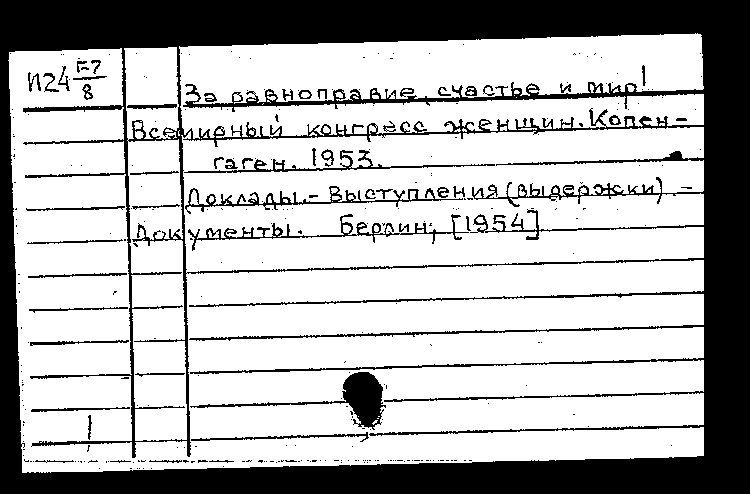 И24 Е7/8
За равноправие, счастье и мир!
Всемирный конгресс женщин. Копен-
гаген. 1953.
Доклады.- Выступления (выдержки) -
Документы. Берлин, [1954]
1